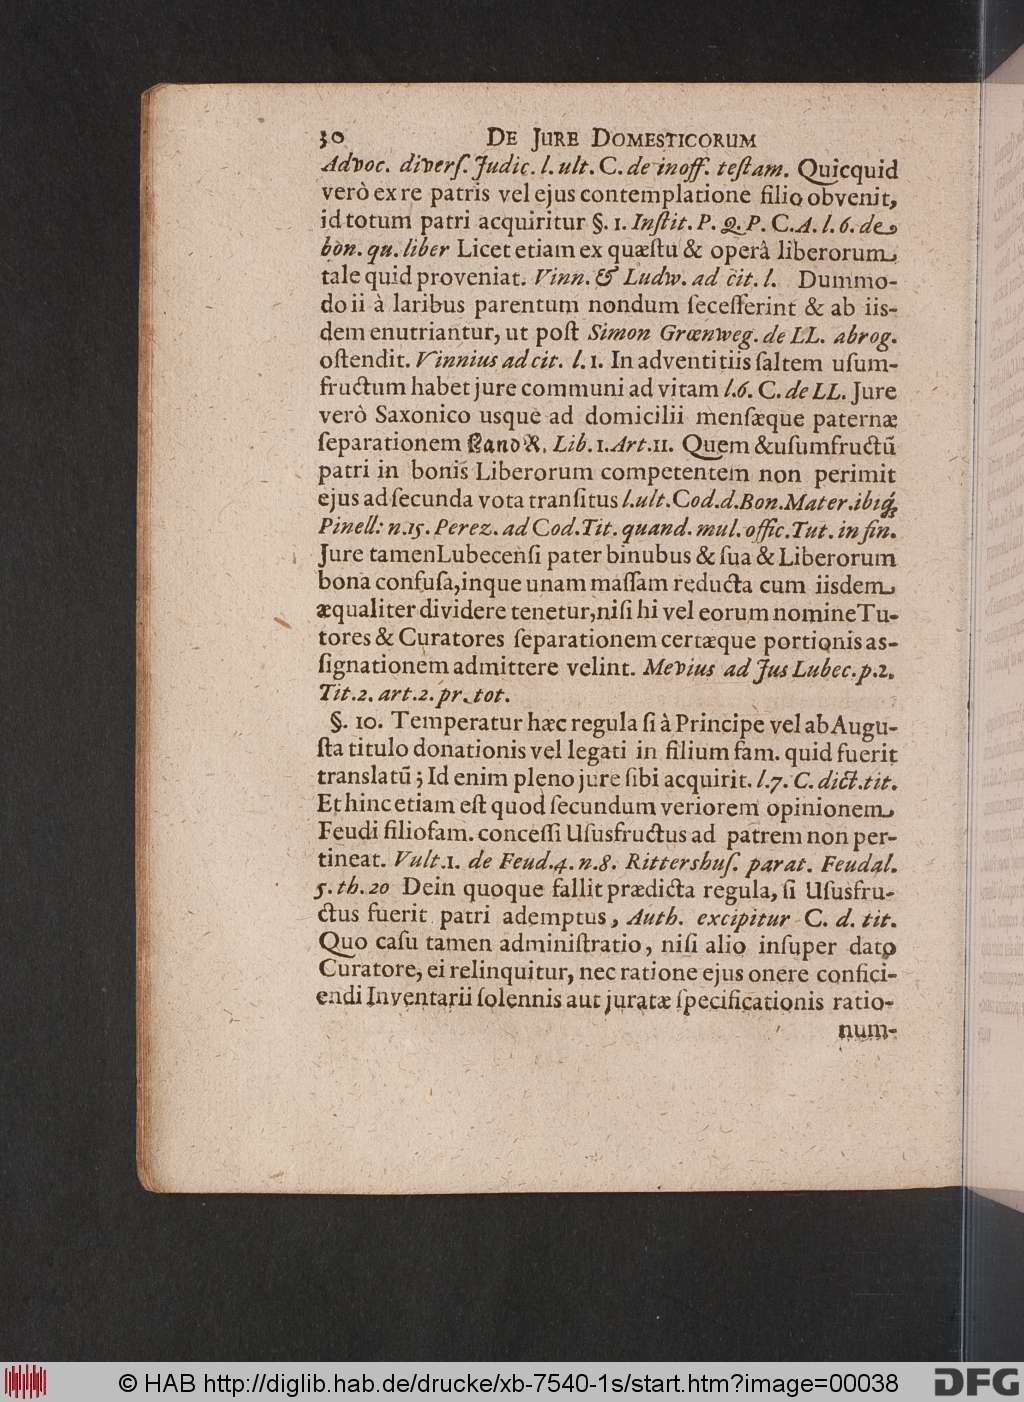 30 DE JURE DOMESTICORUM
Advoc. diverſ. Judic. l. ult. C. de inoff. teſtam. Quicquid
verò ex re patris vel ejus contemplatione filio obvenit,
id totum patri acquiritur §. 1. Inſtit. P. Q. P. C. A. l. 6. de
bon. qu. liber Licet etiam ex quæſtu & operâ liberorum
tale quid proveniat. Vinn. & Ludw. ad cit. l. Dummo-
do ii à laribus parentum nondum ſeceſſerint & ab iis-
dem enutriantur, ut poſt Simon Grœnweg. de LL. abrog.
oſtendit. Vinnius ad cit. l. 1. In adventitiis ſaltem uſum-
fructum habet jure communi ad vitam l. 6. C. de LL. Jure
verò Saxonico usque ad domicilii menſæque paternæ
ſeparationem Land R. Lib. 1. Art. 11. Quem & uſumfructū
patri in bonis Liberorum competentem non perimit
ejus ad ſecunda vota tranſitus l. ult. Cod. d. Bon. Mater. ibiq́;
Pinell: n. 15. Perez. ad Cod. Tit. quand. mul. offic. Tut. in fin.
Jure tamen Lubecenſi pater binubus & ſua & Liberorum
bona confuſa, inque unam maſſam reducta cum iisdem
æqualiter dividere tenetur, niſi hi vel eorum nomine Tu-
tores & Curatores ſeparationem certæque portionis as-
ſignationem admittere velint. Mevius ad Jus Lubec. p. 2.
Tit. 2. art. 2. pr. tot.
§. 10. Temperatur hæc regula ſi à Principe vel ab Augu-
ſta titulo donationis vel legati in filium fam. quid fuerit
translatū; Id enim pleno jure ſibi acquirit. l. 7. C. dict. tit.
Et hinc etiam eſt quod ſecundum veriorem opinionem
Feudi filiofam. conceſſi Uſusfructus ad patrem non per-
tineat. Vult. 1. de Feud. 4. n. 8. Rittershuſ. parat. Feudal.
5. th. 20 Dein quoque fallit prædicta regula, ſi Uſusfru-
ctus fuerit patri ademptus, Auth. excipitur C. d. tit.
Quo caſu tamen adminiſtratio, niſi alio inſuper dato
Curatore, ei relinquitur, nec ratione ejus onere confici-
endi Inventarii ſolennis aut juratæ ſpecificationis ratio-
num-
© HAB http://diglib.hab.de/drucke/xb-7540-1s/start.htm?image=00038 DFG